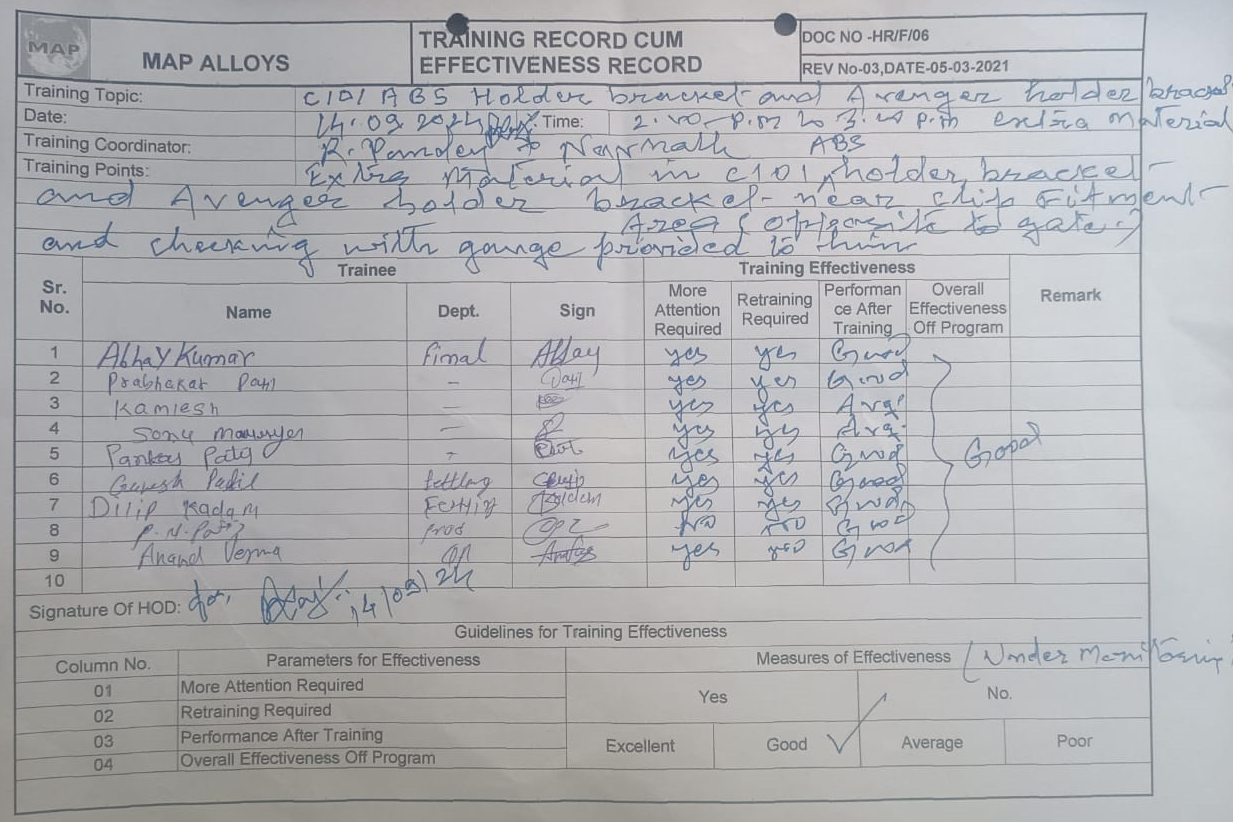 MAP MAP ALLOYS TRAINING RECORD CUM EFFECTIVENESS RECORD DOC NO -HR/F/06
REV No-03,DATE-05-03-2021
Training Topic: C101 ABS Holder bracket and Avenger holder bracket
Date: 14.09.2024 Time: 2.40 P.m to 3.40 p.m extra material
Training Coordinator: R. Pandey Navnath ABS
Training Points: Extra material in C101 holder bracket
and Avenger holder bracket near clip Fitment
Area (opposite to gate.)
and checking with gauge provided to them
Sr. No. Trainee Training Effectiveness Remark
Name Dept. Sign More Attention Required Retraining Required Performan ce After Training Overall Effectiveness Off Program
1 Abhay Kumar Final Abhay yes yes Good
2 Prabhakar Patil – Patil yes yes Good
3 Kamlesh – yes yes Avg.
4 Sonu – yes yes Avg.
5 Pankaj – yes yes Good Good
6 Ganesh Patil Fettling yes yes Good
7 Dilip Kadam Fettling yes yes Good
8 P.N. Patil Prod NO NO Good
9 Anand Verma yes NO Good
10
Signature Of HOD: for, 14/09/24
Guidelines for Training Effectiveness
Column No. Parameters for Effectiveness Measures of Effectiveness (Under Monitoring
01 More Attention Required Yes No.
02 Retraining Required
03 Performance After Training Excellent Good ✓ Average Poor
04 Overall Effectiveness Off Program